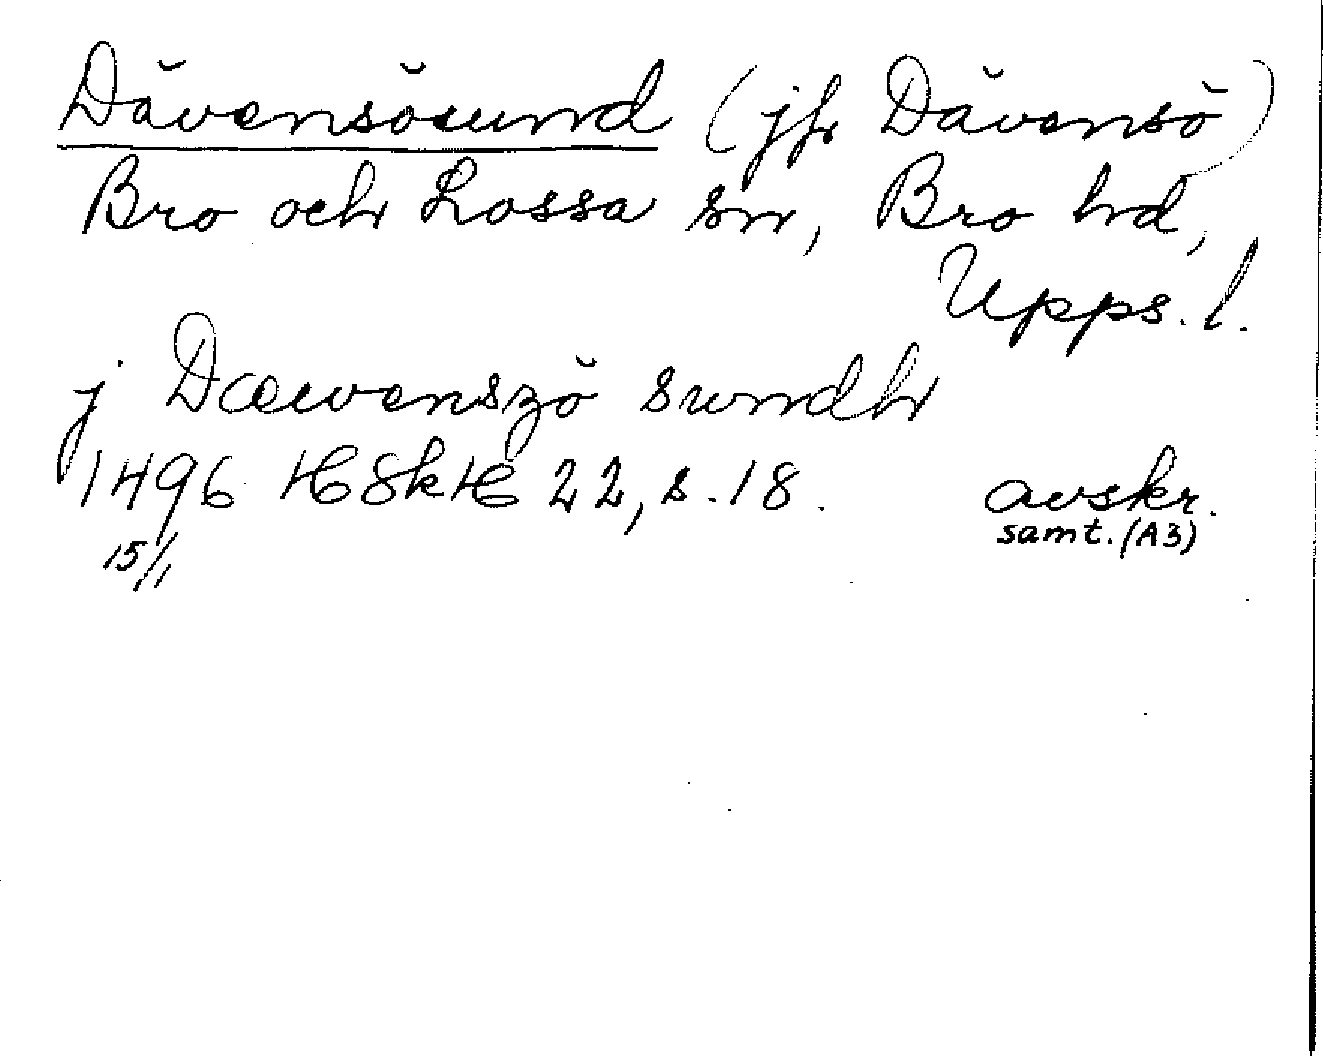 Dävensösund (jfr Dävensö)
Bro och Lossa snr, Bro hd,
Upps. l.
j Dæwenszö sundh
1496 HSkH 22, s. 18. avskr.
15/1 samt. (A3)